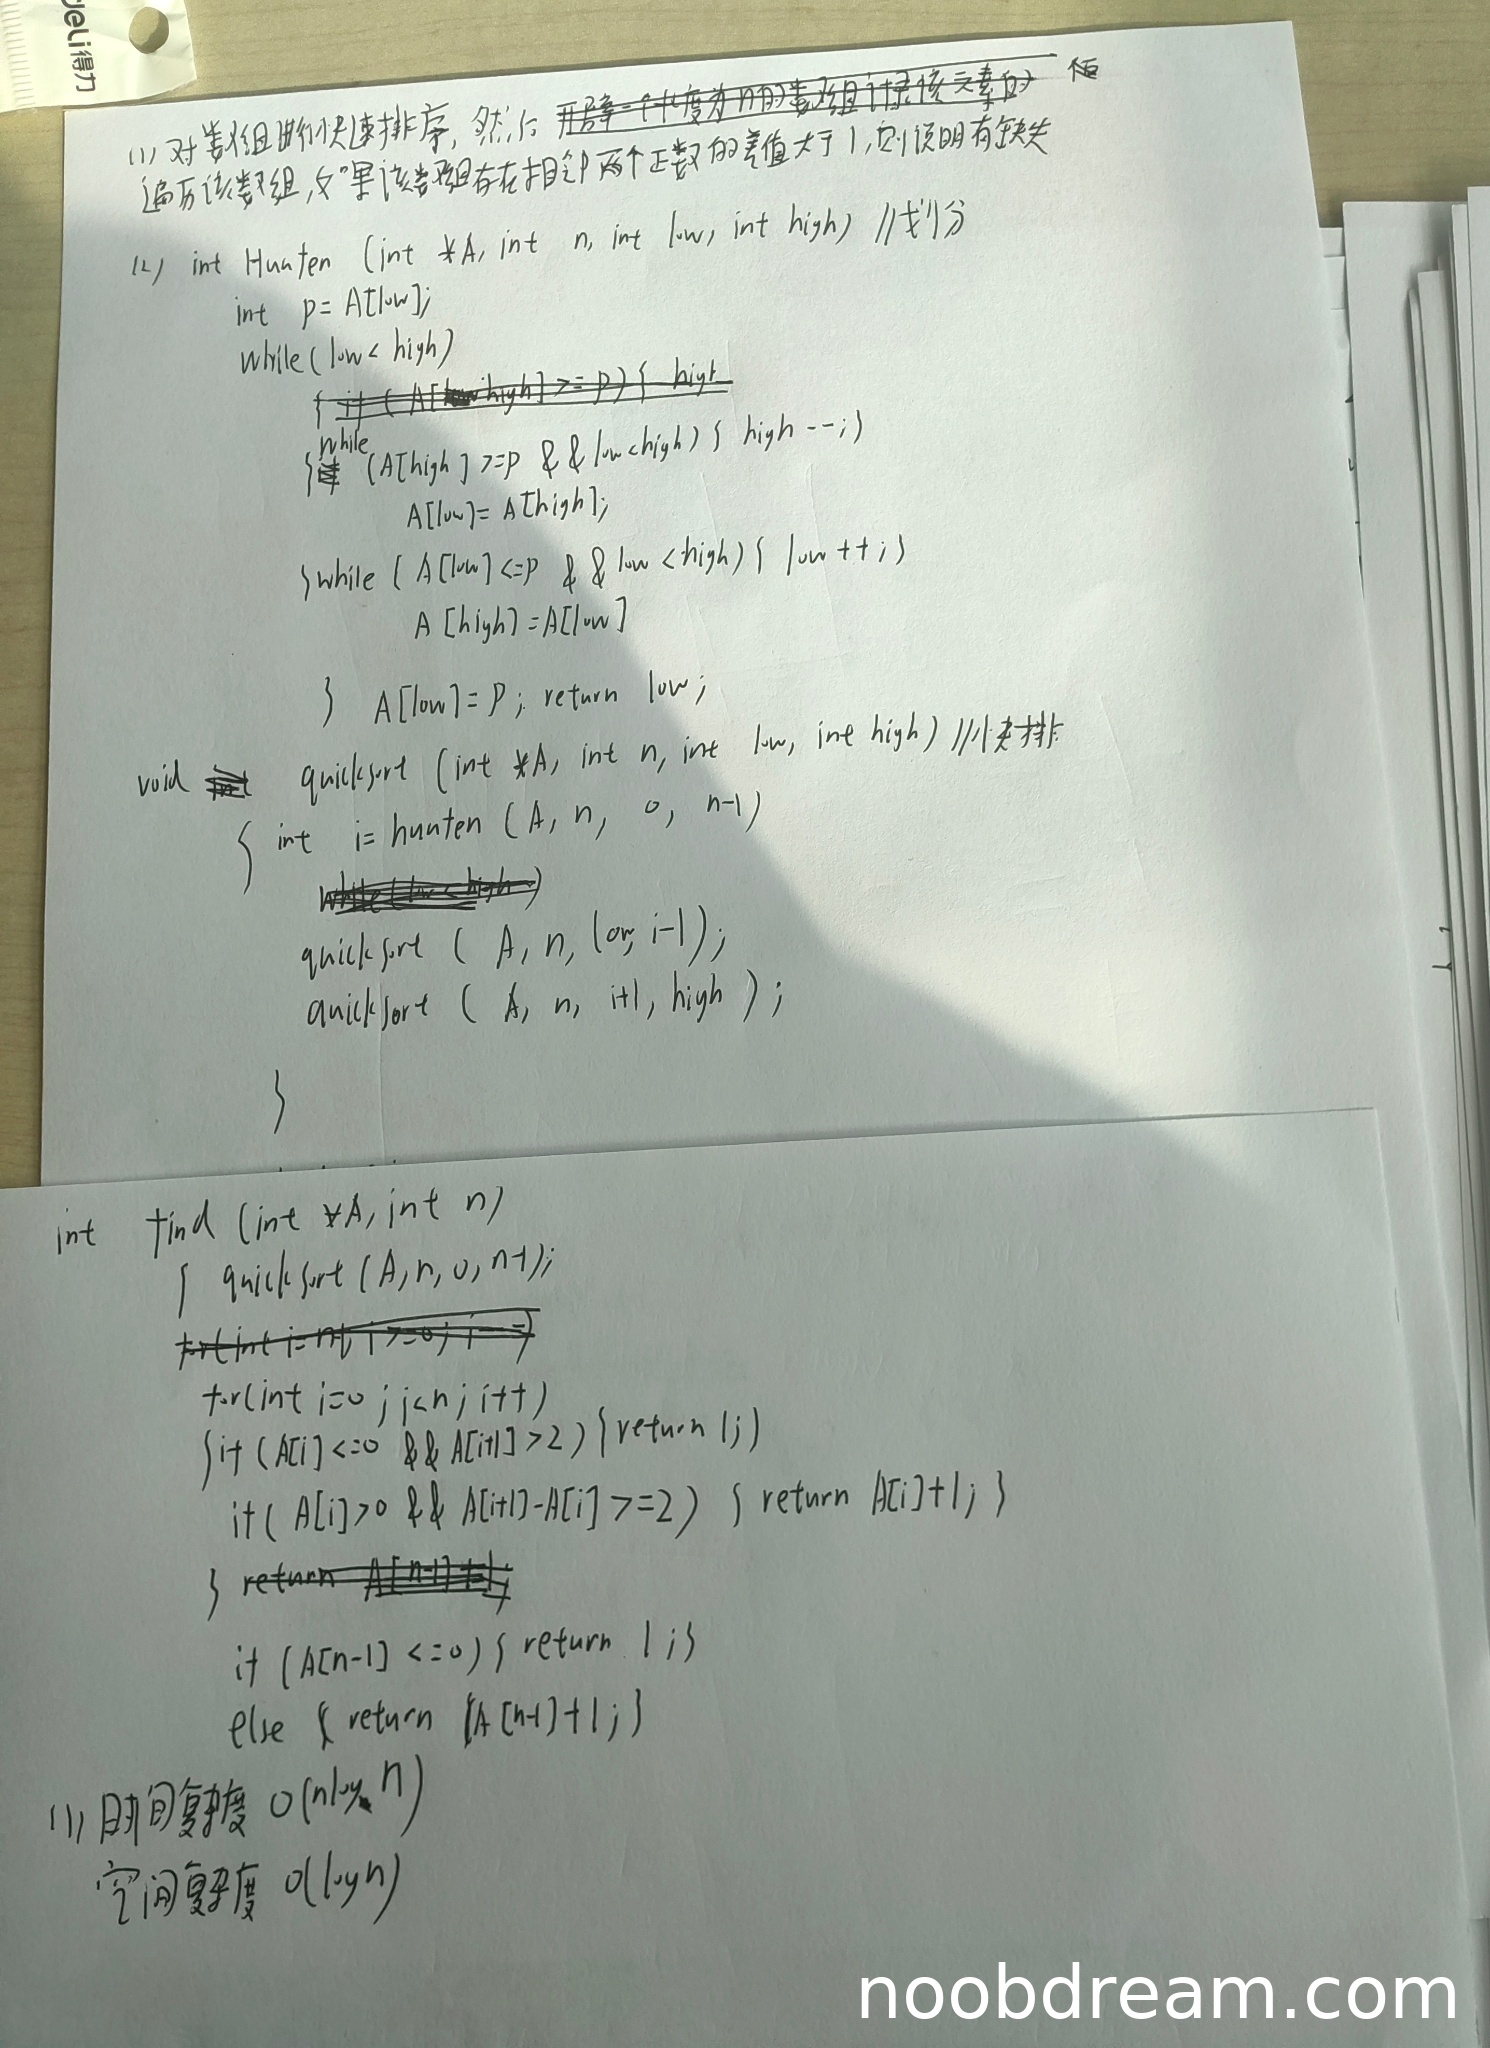 deli得力
(1) 对数组进行快速排序, 然后 开辟一个长度为n的数组记录该元素的 值
遍历该数组,如果该数组存在相邻两个正数的差值大于1,则说明有缺失
(2) int Hunten (int *A, int n, int low, int high) //划分
int p= A[low];
while(low< high)
{ if ( A[high] >= p) { high
while
{if (A[high] >=p && low<high) { high --;}
A[low]= A[high];
}while ( A[low] <=p && low <high) { low ++ ; }
A [high] =A[low]
} A[low]= p; return low;
void int quicksort (int *A, int n, int low, int high) //快排
{ int i= hunten (A, n, 0, n-1)
while (low < high)
quicksort ( A, n, low, i-1);
quicksort ( A, n, i+1, high ) ;
}
int find (int *A, int n)
{ quicksort (A, n, 0, n-1);
for(int i= n-1; i >=0; i--)
for(int i=0 ; i<n ; i++)
{if (A[i] <=0 && A[i+1] >2) {return 1;}
if( A[i]>0 && A[i+1]-A[i] >=2) { return A[i]+1; }
} return A[n-1]+1;
if (A[n-1] <=0) { return 1 ;}
else { return A[n-1]+1; }
(1) 时间复杂度 O(nlog n)
空间复杂度 O(logn)
noobdream.com